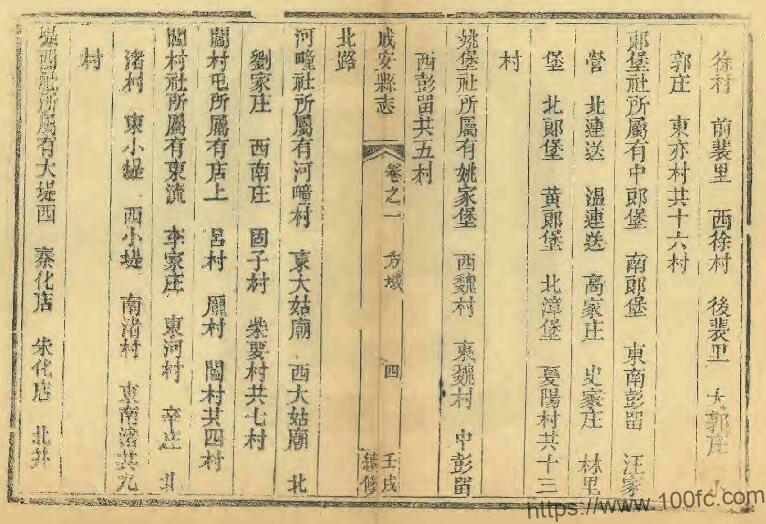 徐村 前裴里 西徐村 後裴里 大郭庄 小
郭庄 東亦村共十六村
郎堡社所屬有中郎堡 南郎堡 東南彭留 汪家
營 北連送 温連送 高家庄 史家庄 林里
堡 北郎堡 黃郎堡 北漳堡 夏陽村共十三
村
姚堡社所屬有姚家堡 西魏村 東魏村 中彭留
西彭留共五村
成安縣志 卷之一 方域 四 壬戌 續修
北路
河疃社所屬有河疃村 東大姑廟 西大姑廟 北
劉家庄 西南庄 固子村 柴要村共七村
閻村屯所屬有店上 呂村 龐村 閻村共四村
閻村社所屬有東流 李家庄 東河村 辛庄 北
渚村 東小堤 西小堤 南渚村 東南渚共九
村
堤西社所屬有大堤西 秦化店 朱化店 北井
https://www.100fc.com